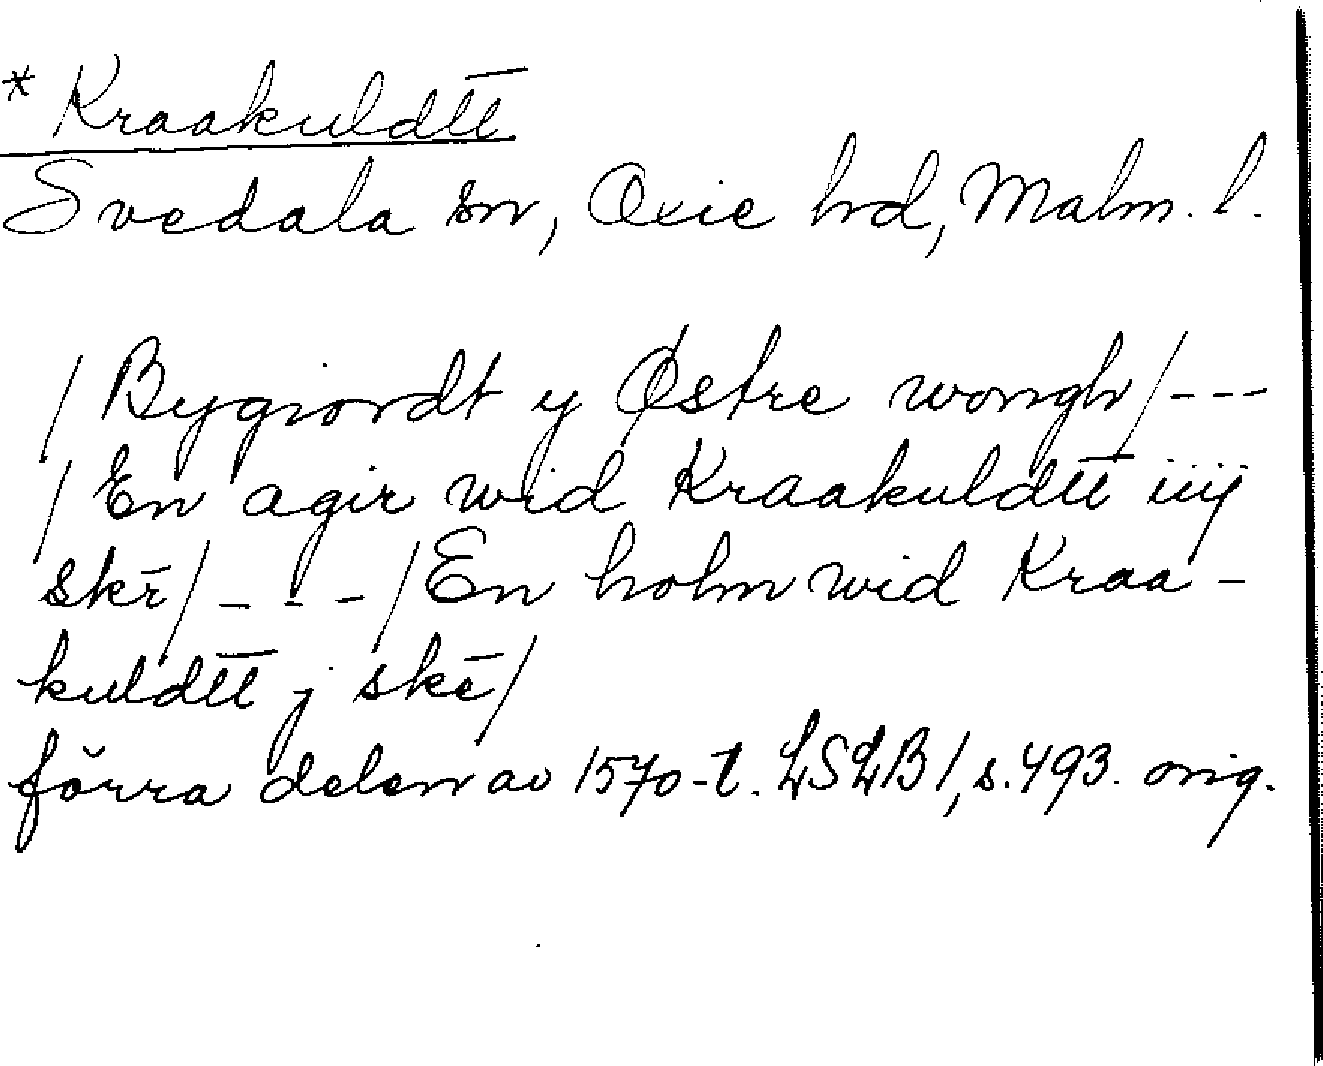 * Kraakuldt̅t̅
Svedala sn, Oxie hd, Malm. l.
/ Bygiordt y Østre wongh / ---
/ En agir wid Kraakuldt̅t̅ iiij
skē / - - - / En holm wid Kraa-
kuldt̅t̅ j skē /
förra delen av 1570-t. LSLB 1, s. 493. orig.